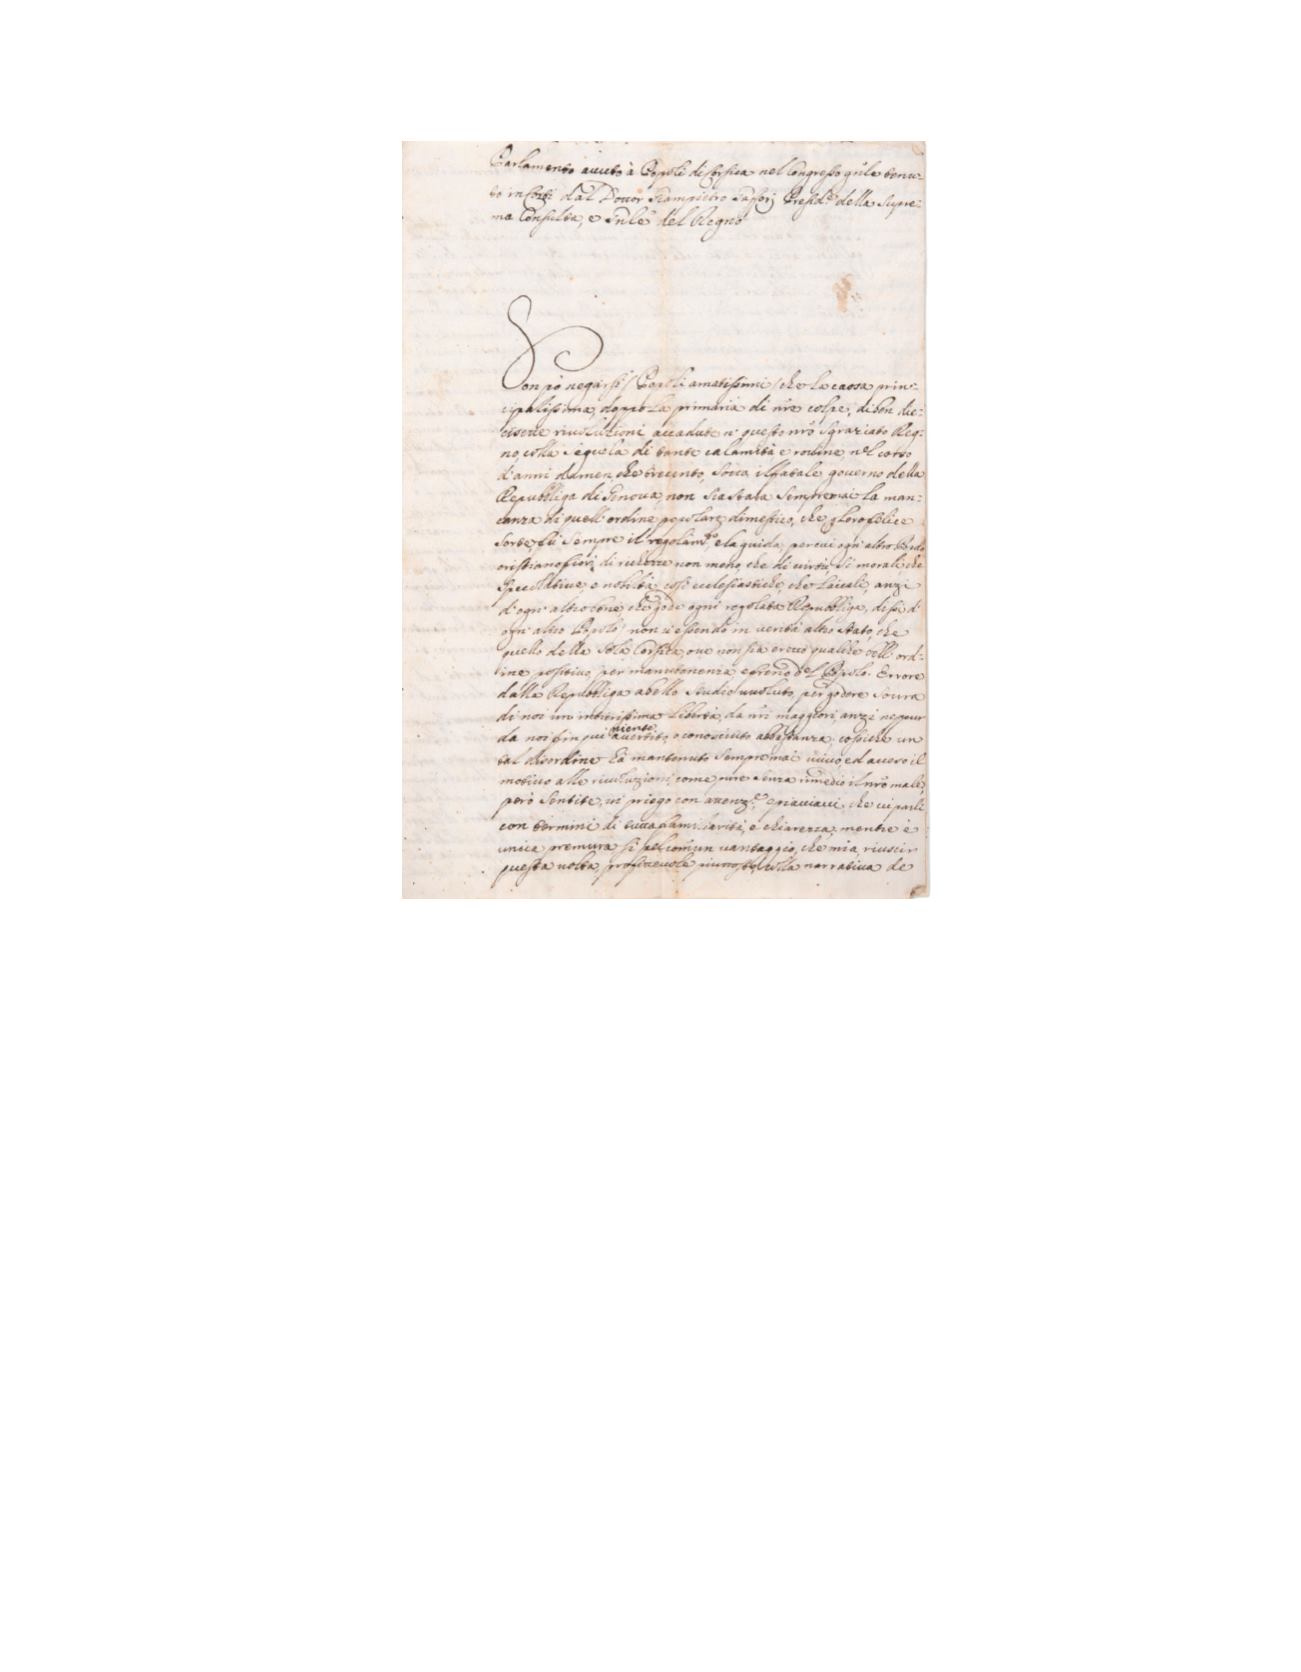 Parlamento avuto à Popoli di Corsica nel Congresso gn'le tenu-
to in Corti dal Dottor Giampietro Gafforj Presid.e della Supre-
ma Consulta, e Gn'le del Regno
Non pò negarsi (Popoli amatissimi) che la causa prin-
cipalissima, doppo la primaria di nr'e colpe, di ben die-
cisette rivoluzioni accadute n' questo nr'o sgraziato Reg-
no, colla sequela di tante calamità, e rovine, nel corso
d'anni da men che trecento, sotto il fatale governo della
Repubbliga di Genova, non sia stata sempremai la man-
canza di quell'ordine popolare dimestico, che, p loro felice
sorte, fù sempre il regolam.to, e la guida, per cui ogn'altro Popolo
cristiano fiorì di richezze non meno, che di virtù, sì morali, che
speculative, e nobiltà, così ecclesiastiche, che laicali, anzi
d'ogn'altro bene, che gode ogni regolata Repubbliga, dissi d'
ogn'altro Popolo, non v'essendo in verità altro stato, che
quello della sola Corsica, ove non sia eretto qualche dell'ord-
ine positivo, per manutenenza, e freno del Popolo. Errore
dalla Repubbliga a bello studio voluto, per godere sovra
di noi un interissima libertà, da nr'i maggiori, anzi neppur
da noi fin qui niente avertito, o conosciuto abbastanza; cossiche un
tal disordine hà mantenuto sempremai vivo, ed acceso il
motivo alle rivoluzioni, come pure senza rimedio il nr'o male,
però sentite, vi priego con attenz.e, e piacciavi, che vi parli
con termini di tutta famigliarità, e chiarezza, mentre è
unica premura sì pel comun vantaggio, che mia, riuscir
questa volta, profittevole piuttosto, colla narrativa de